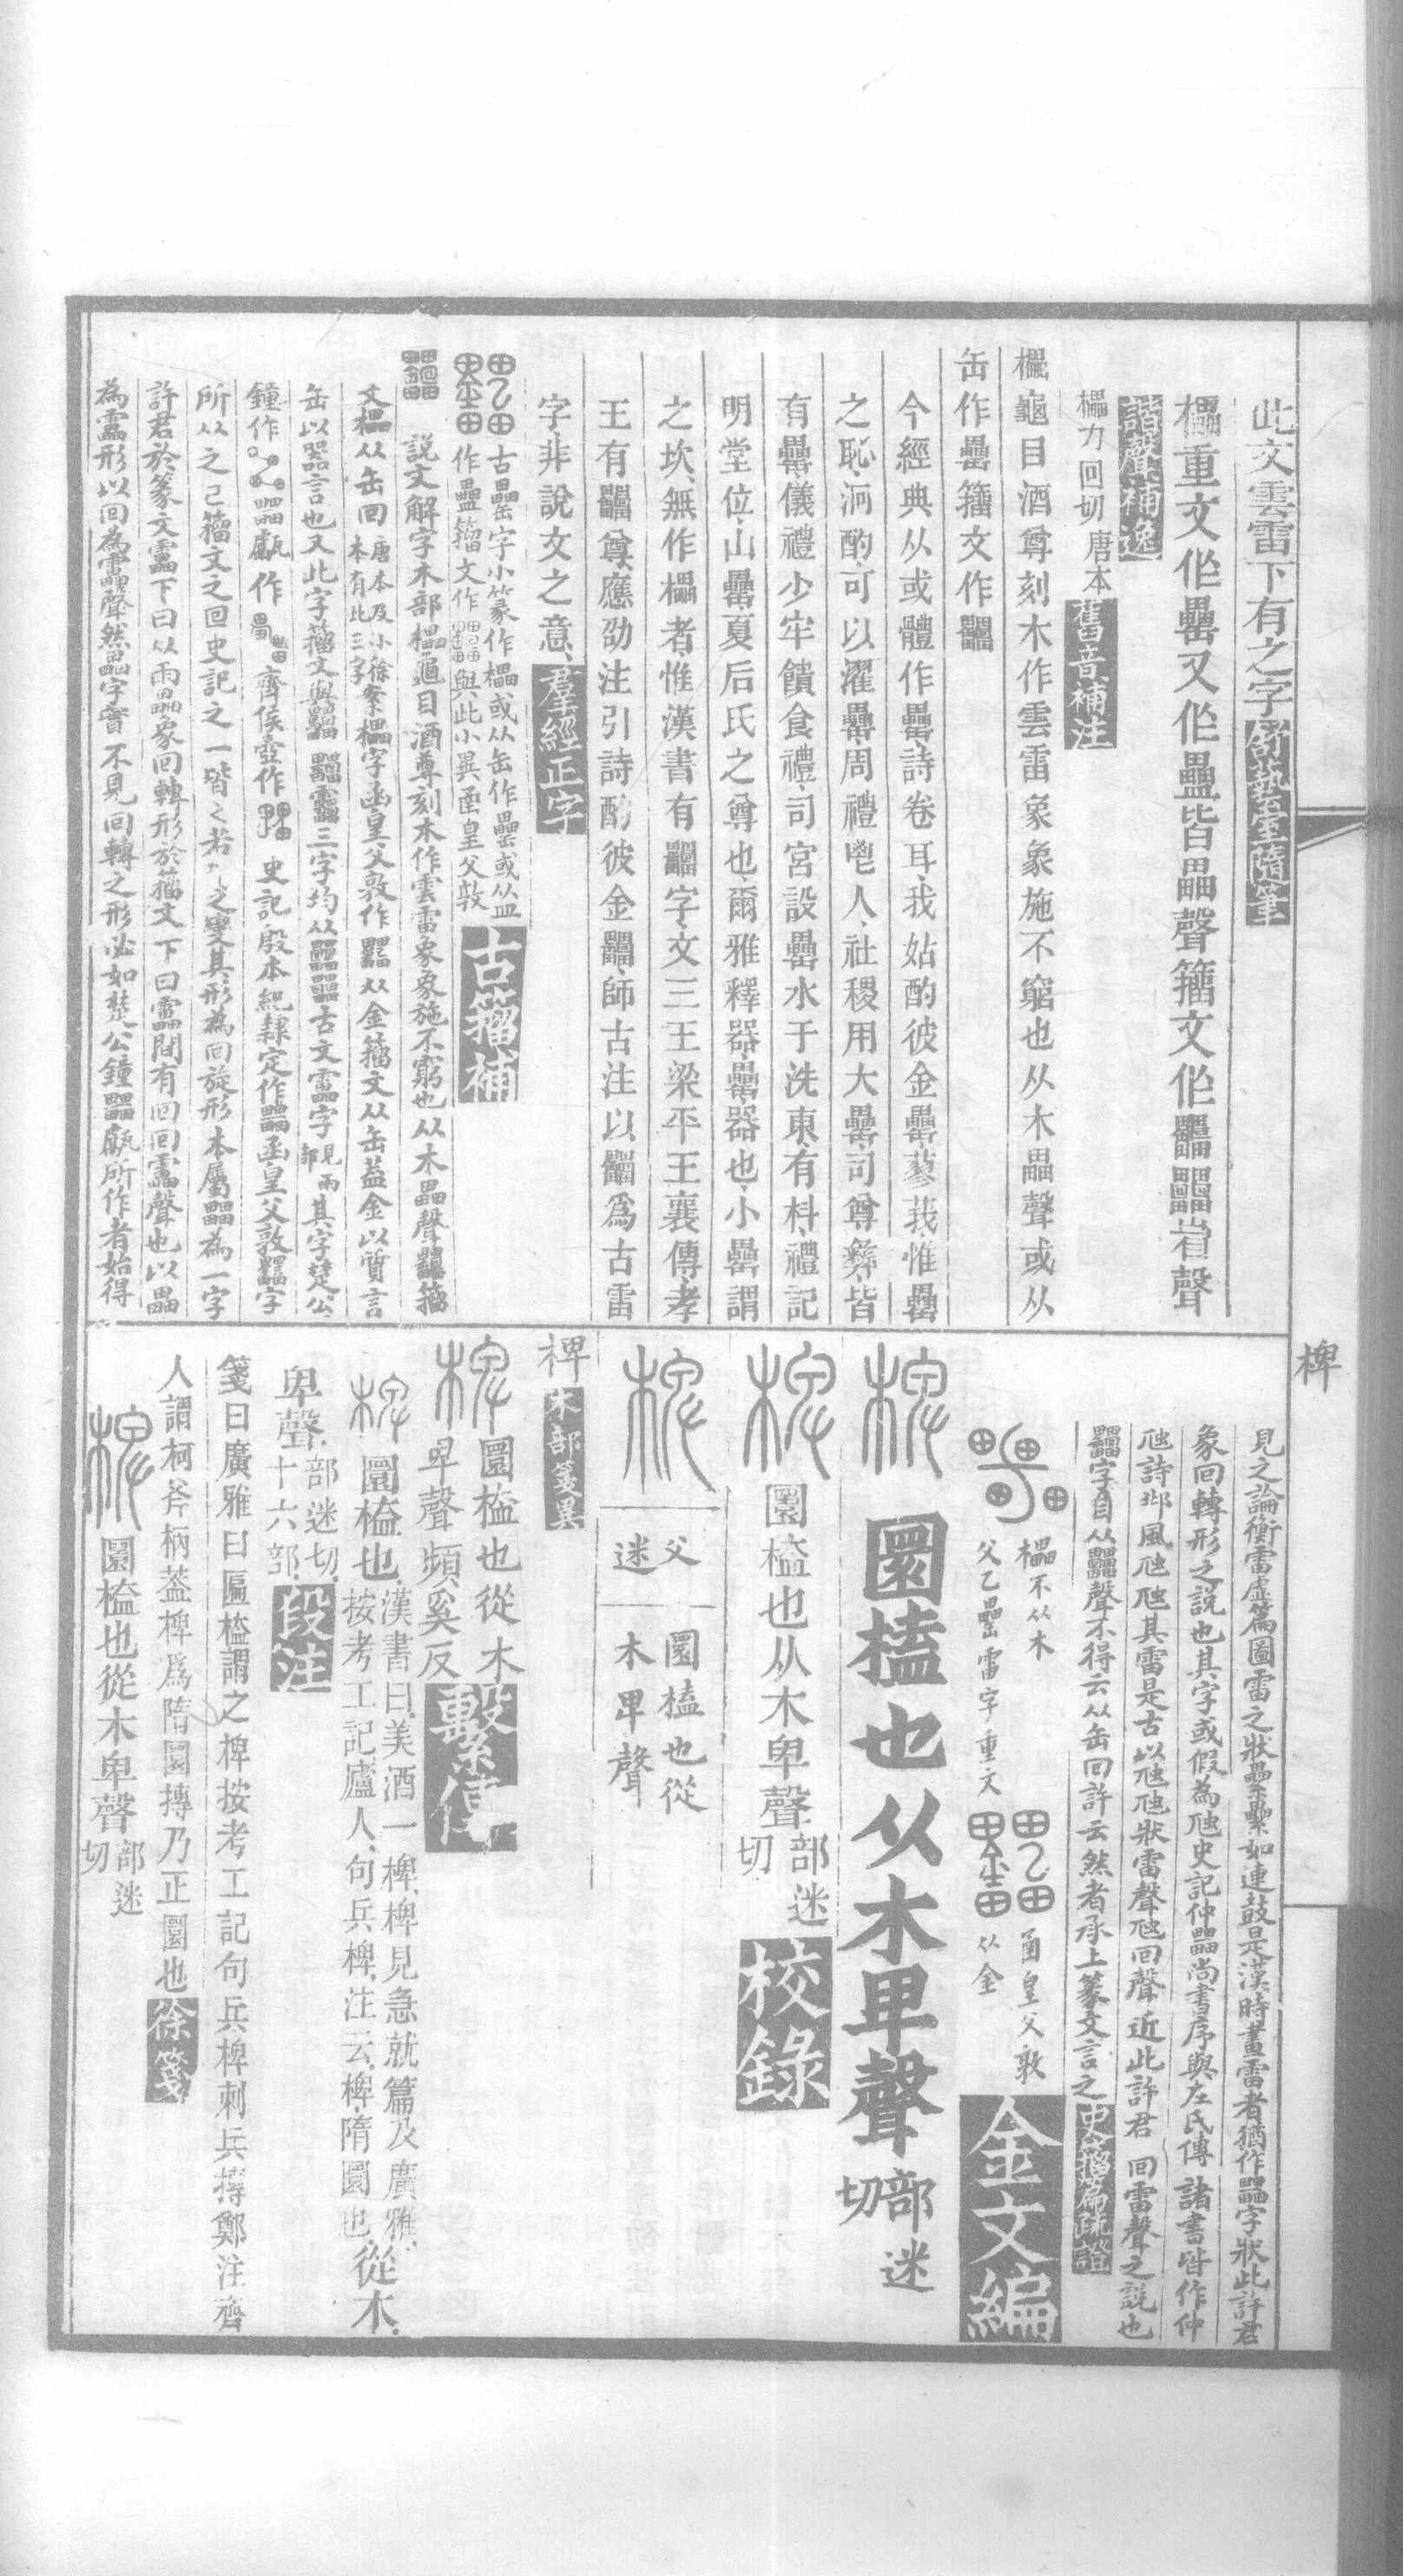 此文雲雷下有之字舒藝室隨筆
櫑重文作罍又作𥂹皆畾聲籀文作𤮐𤳳省聲
諧聲補逸
櫑力回切唐本舊音補注
櫑龜目酒尊刻木作雲雷象象施不窮也从木畾聲或从
缶作罍籀文作𤮐
今經典从或體作罍詩卷耳我姑酌彼金罍蓼莪惟罍
之恥泂酌可以濯罍周禮鬯人社稷用大罍司尊彝皆
有罍儀禮少牢饋食禮司宮設罍水于洗東有枓禮記
明堂位山罍夏后氏之尊也爾雅釋器罍器也小罍謂
之坎無作櫑者惟漢書有𤮐字文三王梁平王襄傳孝
王有𤮐尊應劭注引詩酌彼金𤮐師古注以𤮐爲古雷
字非說文之意羣經正字
古罍字小篆作櫑或从缶作罍或从皿
作𥂹籀文作與此小異圅皇父敦
古籀補
說文解字木部櫑龜目酒尊刻木作雲雷象象施不窮也从木畾聲𤮐籀
文櫑从缶回唐本及小徐本有此三字案櫑字函皇父敦作从金籀文从缶葢金以質言
缶以器言也又此字籀文與三字均从古文靁字見雨部其字楚公
鐘作作齊侯壺作史記殷本紀隸定作函皇父敦字
所从之己籀文之回史記之一階之若之變其形為回旋形本屬為一字
許君於篆文靁下曰从雨畾象回轉形於籀文下曰靁間有回回靁聲也以畾
為靁形以回為靁聲然畾字實不見回轉之形必如楚公鐘所作者始得
見之論衡雷虛篇圖雷之狀纍纍如連鼓是漢時畫雷者猶作字狀此許君
象回轉形之說也其字或假為虺史記仲尚書序與左氏傳諸書皆作仲
虺詩邶風虺虺其雷是古以虺虺狀雷聲虺回聲近此許君回雷聲之說也
字自从聲不得云从缶回許云然者承上篆文言之史籀篇疏證
櫑不从木
父乙罍雷字重文
函皇父敦
从金
金文編
椑
圜榼也从木卑聲部迷切
圜榼也从木卑聲部迷切校錄
父迷
圜榼也從木卑聲
椑木部箋異
圜榼也從木卑聲頻奚反繫傳
圜榼也漢書曰美酒一椑椑見急就篇及廣雅按考工記廬人句兵椑注云椑隋圜也從木
卑聲部迷切十六部段注
箋曰廣雅曰匾榼謂之椑按考工記句兵椑刺兵摶鄭注齊
人謂柯斧柄葢椑爲隋圜摶乃正圜也徐箋
圜榼也從木卑聲部迷切